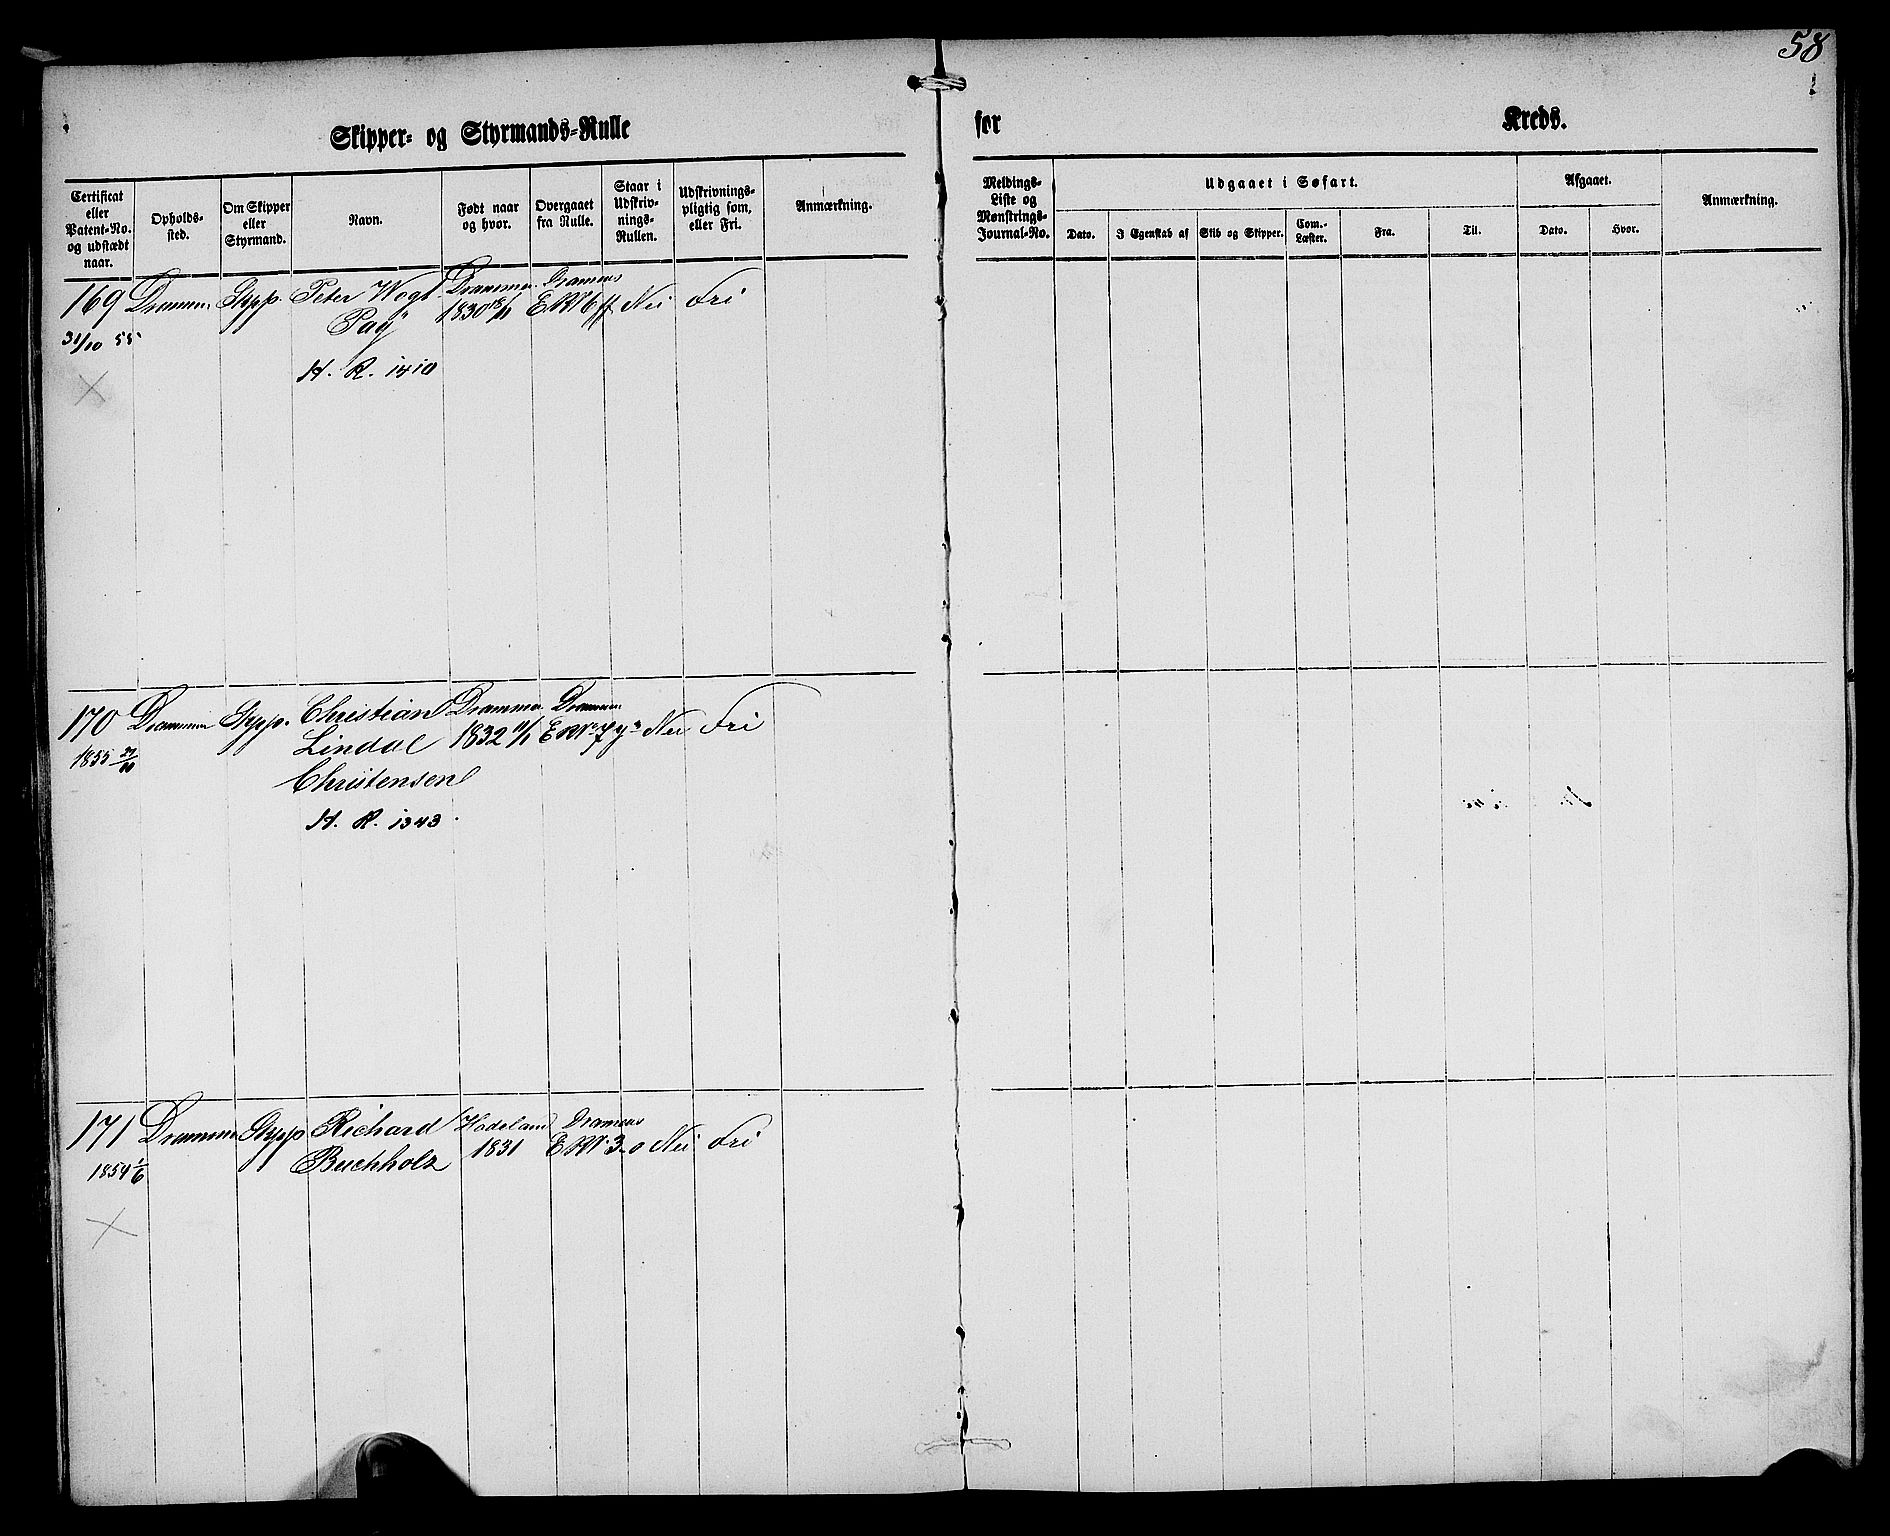 58
Skipper- og Styrmands-Rulle
for
Kreds.
Certificat eller Patent-No. og udstædt naar.
Opholds-sted.
Om Skipper eller Styrmand.
Navn.
Født naar og hvor.
Overgaaet fra Rulle.
Staar i Udskriv-nings-Rullen.
Udskrivnings-pligtig som, eller Fri.
Anmærkning.
Meldings-Liste og Mønstrings-Journal-No.
Udgaaet i Søfart.
Dato.
I Egenskab af
Skib og Skipper.
Com.-Læster.
Fra.
Til.
Afgaaet.
Dato.
Hvor.
Anmærkning.
169 Drammen Skpp. Peter Wogt Drammen Dramens
31/10 55 1830 Nei Fri
H. R. 1410
170 Drammen Skpp. Christian Drammen Drammen
1855 Lindal 1832 11/1 Nei Fri
Christensen
H. R. 1343
171 Drammen Skpp Richard Hadeland Dramens
1854 1/6 Buchholz 1831 Nei Fri